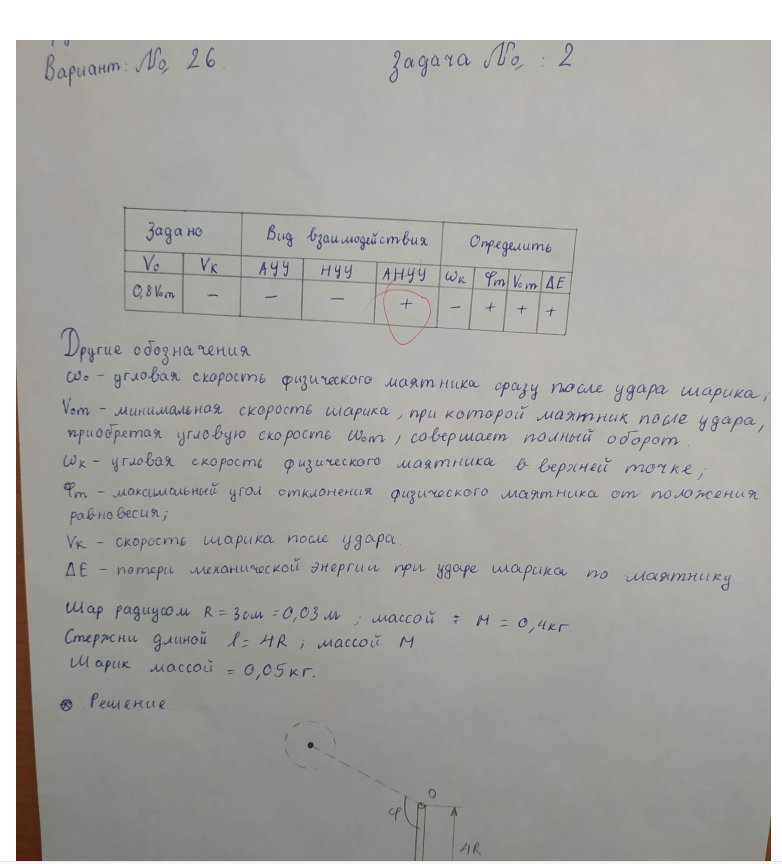 Вариант: № 26. Задача № : 2
Задано Вид взаимодействия Определить
V₀ Vк АУУ НУУ АНУУ ωк φm V₀m ΔE
0,8V₀m – – – + – + + +
Другие обозначения
ω₀ – угловая скорость физического маятника сразу после удара шарика;
V₀m – минимальная скорость шарика, при которой маятник после удара,
приобретая угловую скорость ω₀m, совершает полный оборот.
ωк – угловая скорость физического маятника в верхней точке;
φm – максимальный угол отклонения физического маятника от положения
равновесия;
Vк – скорость шарика после удара.
ΔE – потери механической энергии при ударе шарика по маятнику
Шар радиусом R = 3см = 0,03 м ; массой = M = 0,4кг.
Стержни длиной l = 4R ; массой M
Шарик массой = 0,05кг.
Решение
O
φ
4R